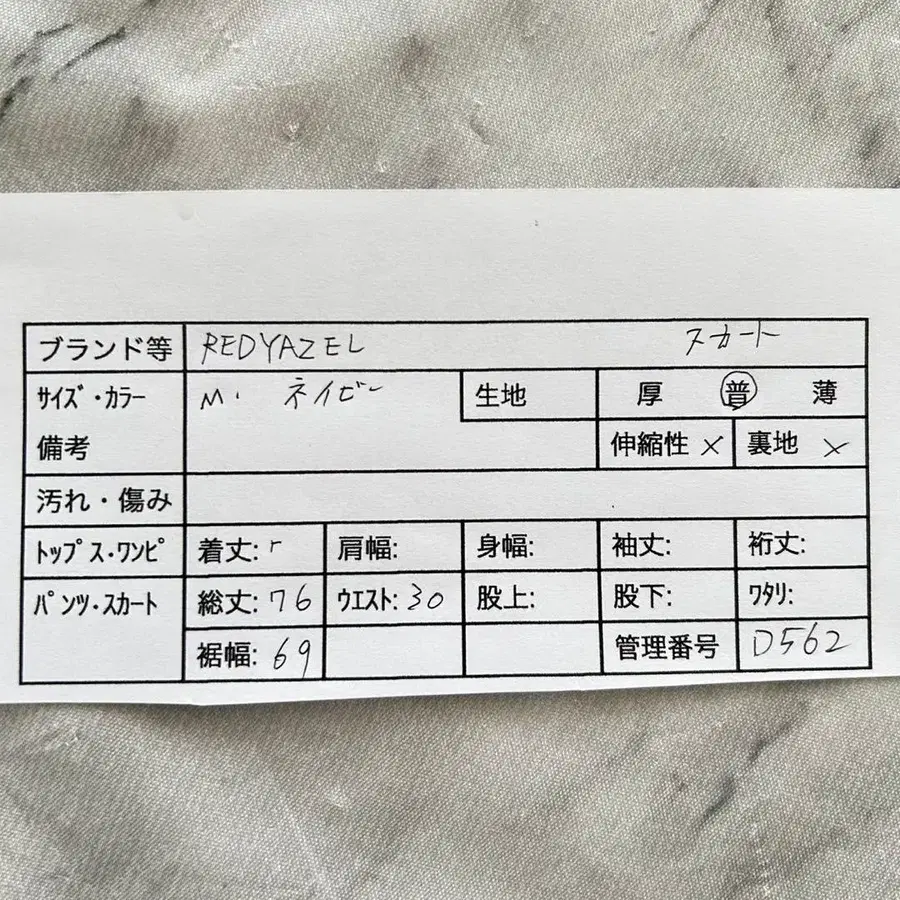 ブランド等 REDYAZEL スカート
サイズ・カラー M. ネイビー 生地 厚 普 薄
備考 伸縮性 × 裏地 ×
汚れ・傷み
トップス・ワンピ 着丈: 肩幅: 身幅: 袖丈: 裄丈:
パンツ・スカート 総丈: 76 ウエスト: 30 股上: 股下: ワタリ:
裾幅: 69 管理番号 D562